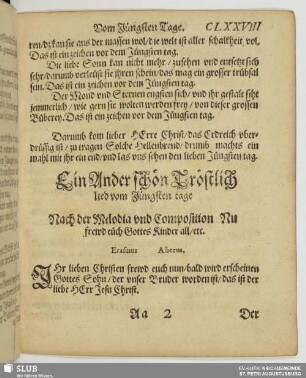 Vom Jüngsten Tage. CLXXVIII
ren/dz kan sie aus der massen wol/die welt ist aller schalkheit vol,
Das ist ein zeichen vor dem Jüngsten tag.
Die liebe Sonn kan nicht mehr/ zusehen vnd entsetzt sich
sehr/darumb verleüst sie ihren schein/das mag ein grosser trübsal
sein. Das ist ein zeichen vor dem Jüngsten tag.
Der Mond vnd Sternen engsten sich/vnd ihr gestalt seht
jemmerlich/ wie gern sie wolten werden frey/ von dieser grossen
Büberey. Das ist ein zeichen vor dem Jüngsten tag.
Darumb kom lieber HErre Christ/das Erdreich vber-
drüssig ist/ zu tragen Solche Hellenbrend/drumb machs ein
mahl mit ihr ein end/vnd las vns sehen den lieben Jüngsten tag.
Ein Ander schön Tröstlich
lied vom Jüngsten tage
Nach der Melodia vnd Composition Nu
frewd eüch Gottes Kinder all/etc.
Erasmus Alberus.
IHr lieben Christen frewd euch nun/bald wird erscheinen
Gottes Sohn/ der vnser Bruder worden ist/das ist der
liebe HErr Jesu Christ.
Aa 2 Der
SLUB
Wir führen Wissen.
EV.-LUTH. KIRCHGEMEINDE
ST. PETRI AUGUSTUSBURG